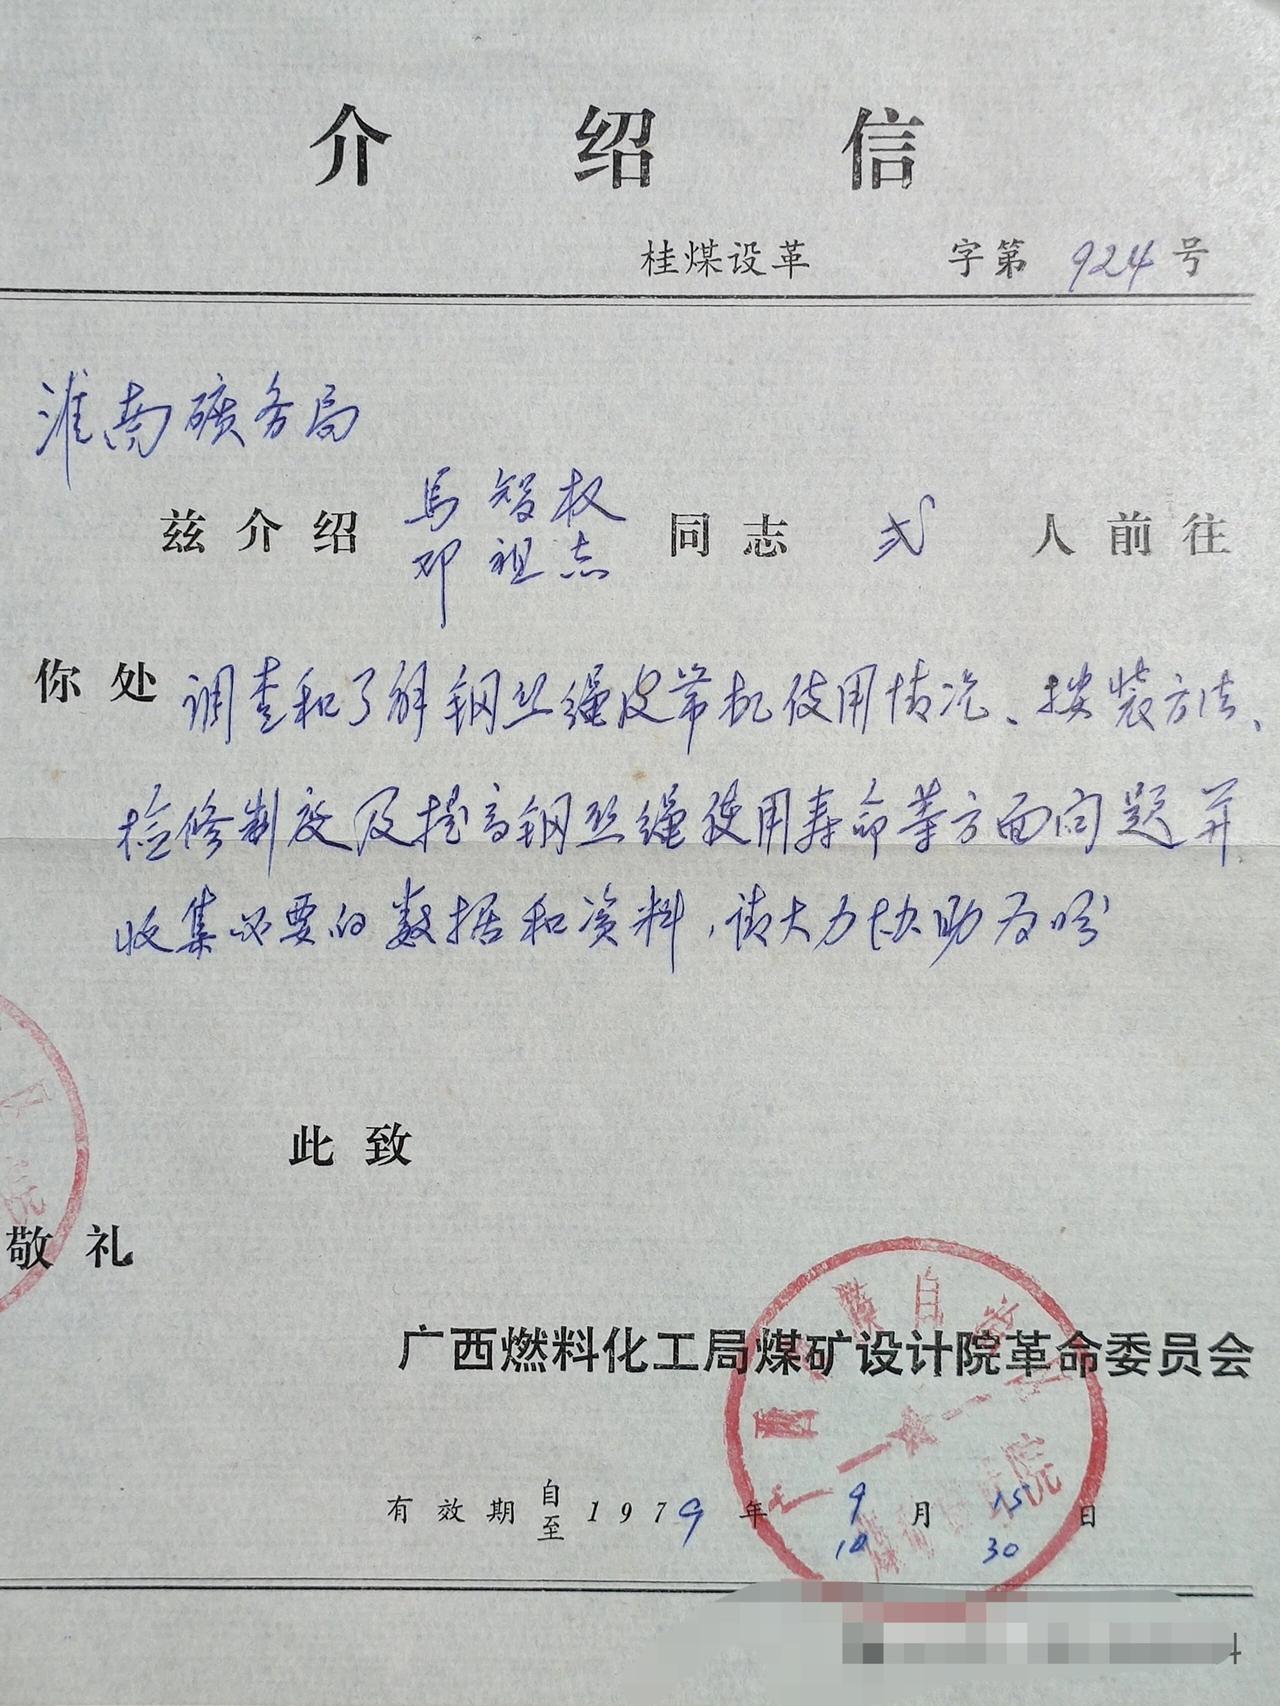 介绍信
桂煤设革 字第 924 号
淮南礦务局
兹介绍 马智权 同志 弍 人前往
邓祖志
你处 调查和了解钢丝绳皮带机使用情况、按装方法、
检修制度及提高钢丝绳使用寿命等方面问题并
收集必要的数据和资料，请大力协助为盼
此致
敬礼
广西燃料化工局煤矿设计院革命委员会
有效期 自 1979 年 9 月 15 日
至 10 30